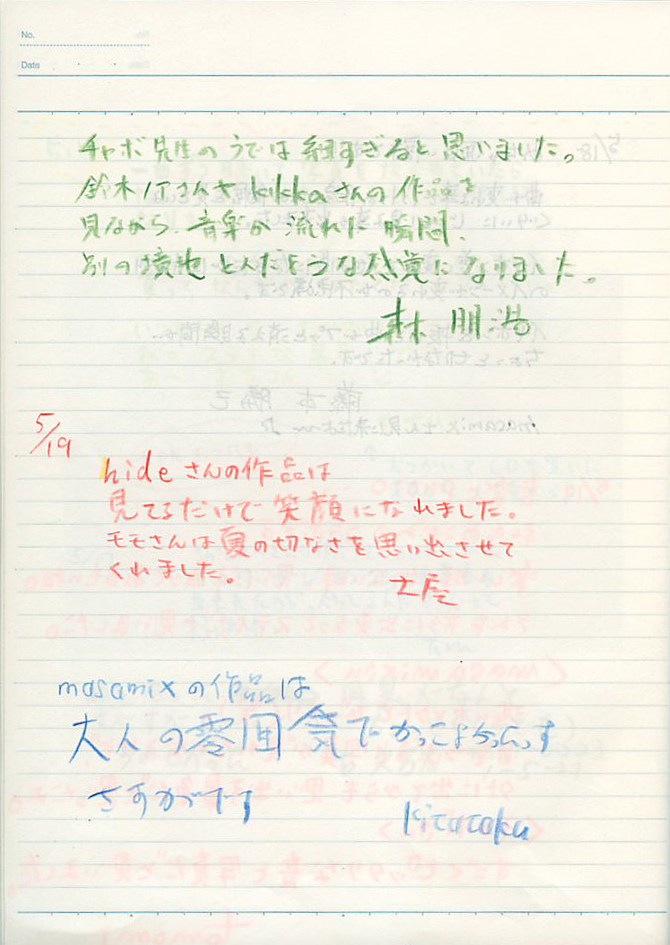 No.
Date
チャボ先生のうでは細すぎると思いました。
鈴木さんやkikkaさんの作品を
見ながら、音楽が流れた瞬間、
別の境地とんだような感覚になりました。
森 朋浩
5/19
hideさんの作品は
見てるだけで笑顔になれました。
モモさんは夏の切なさを思い出させて
くれました。
土屋
masamixの作品は
大人の雰囲気でかっこよかったっす
さすがです
kitataku